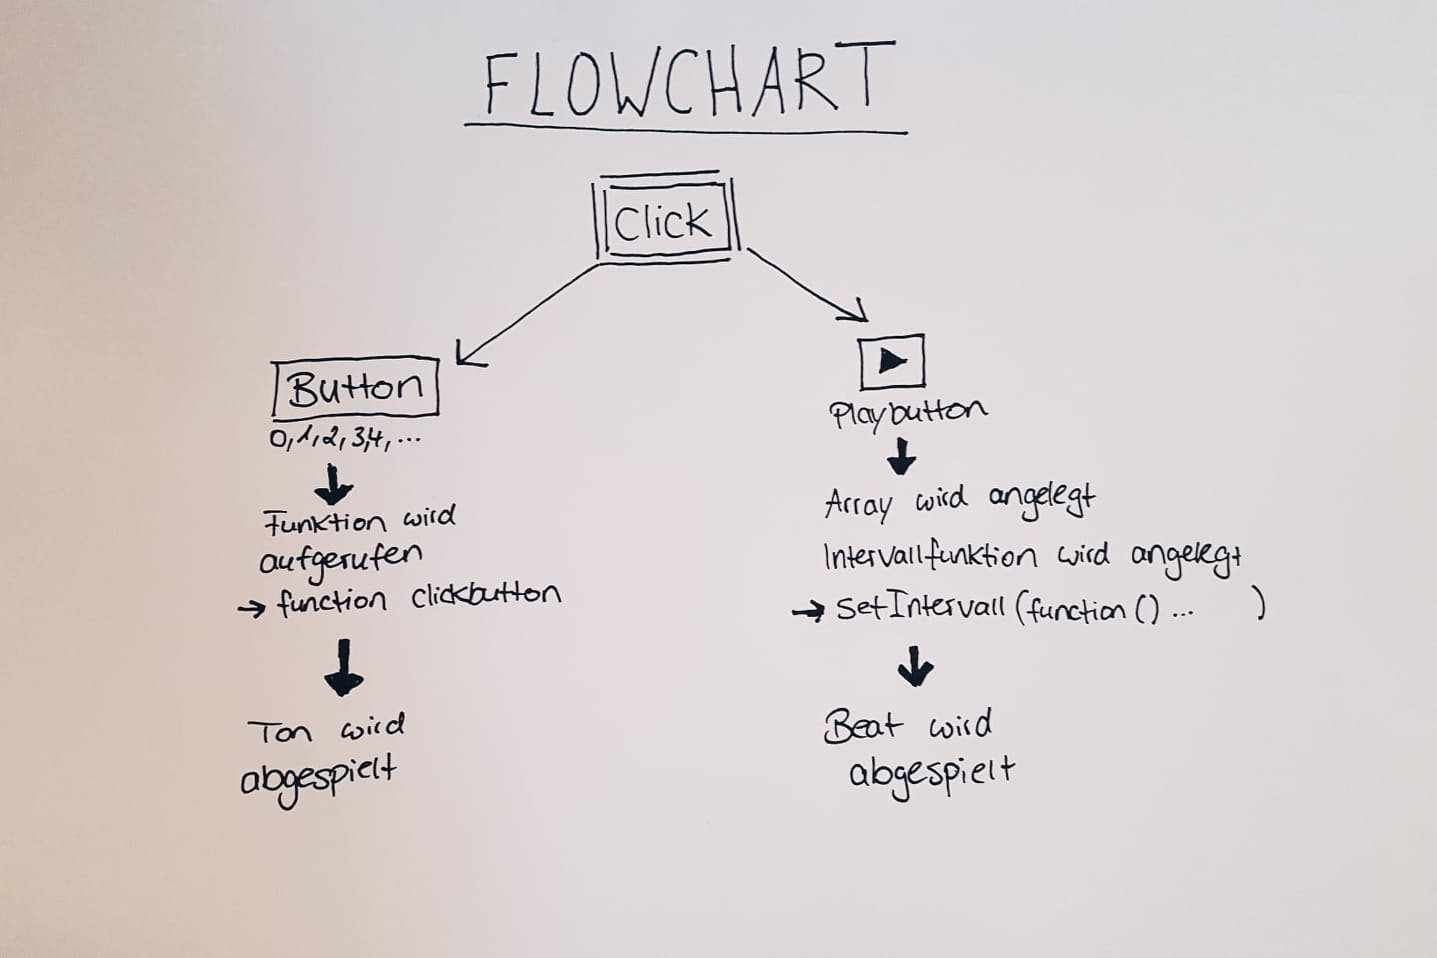 FLOWCHART
Click
Button
0,1,2,3,4,...
Funktion wird
aufgerufen
→ function clickbutton
Ton wird
abgespielt
Playbutton
Array wird angelegt
Intervallfunktion wird angelegt
→ SetIntervall (function () ... )
Beat wird
abgespielt